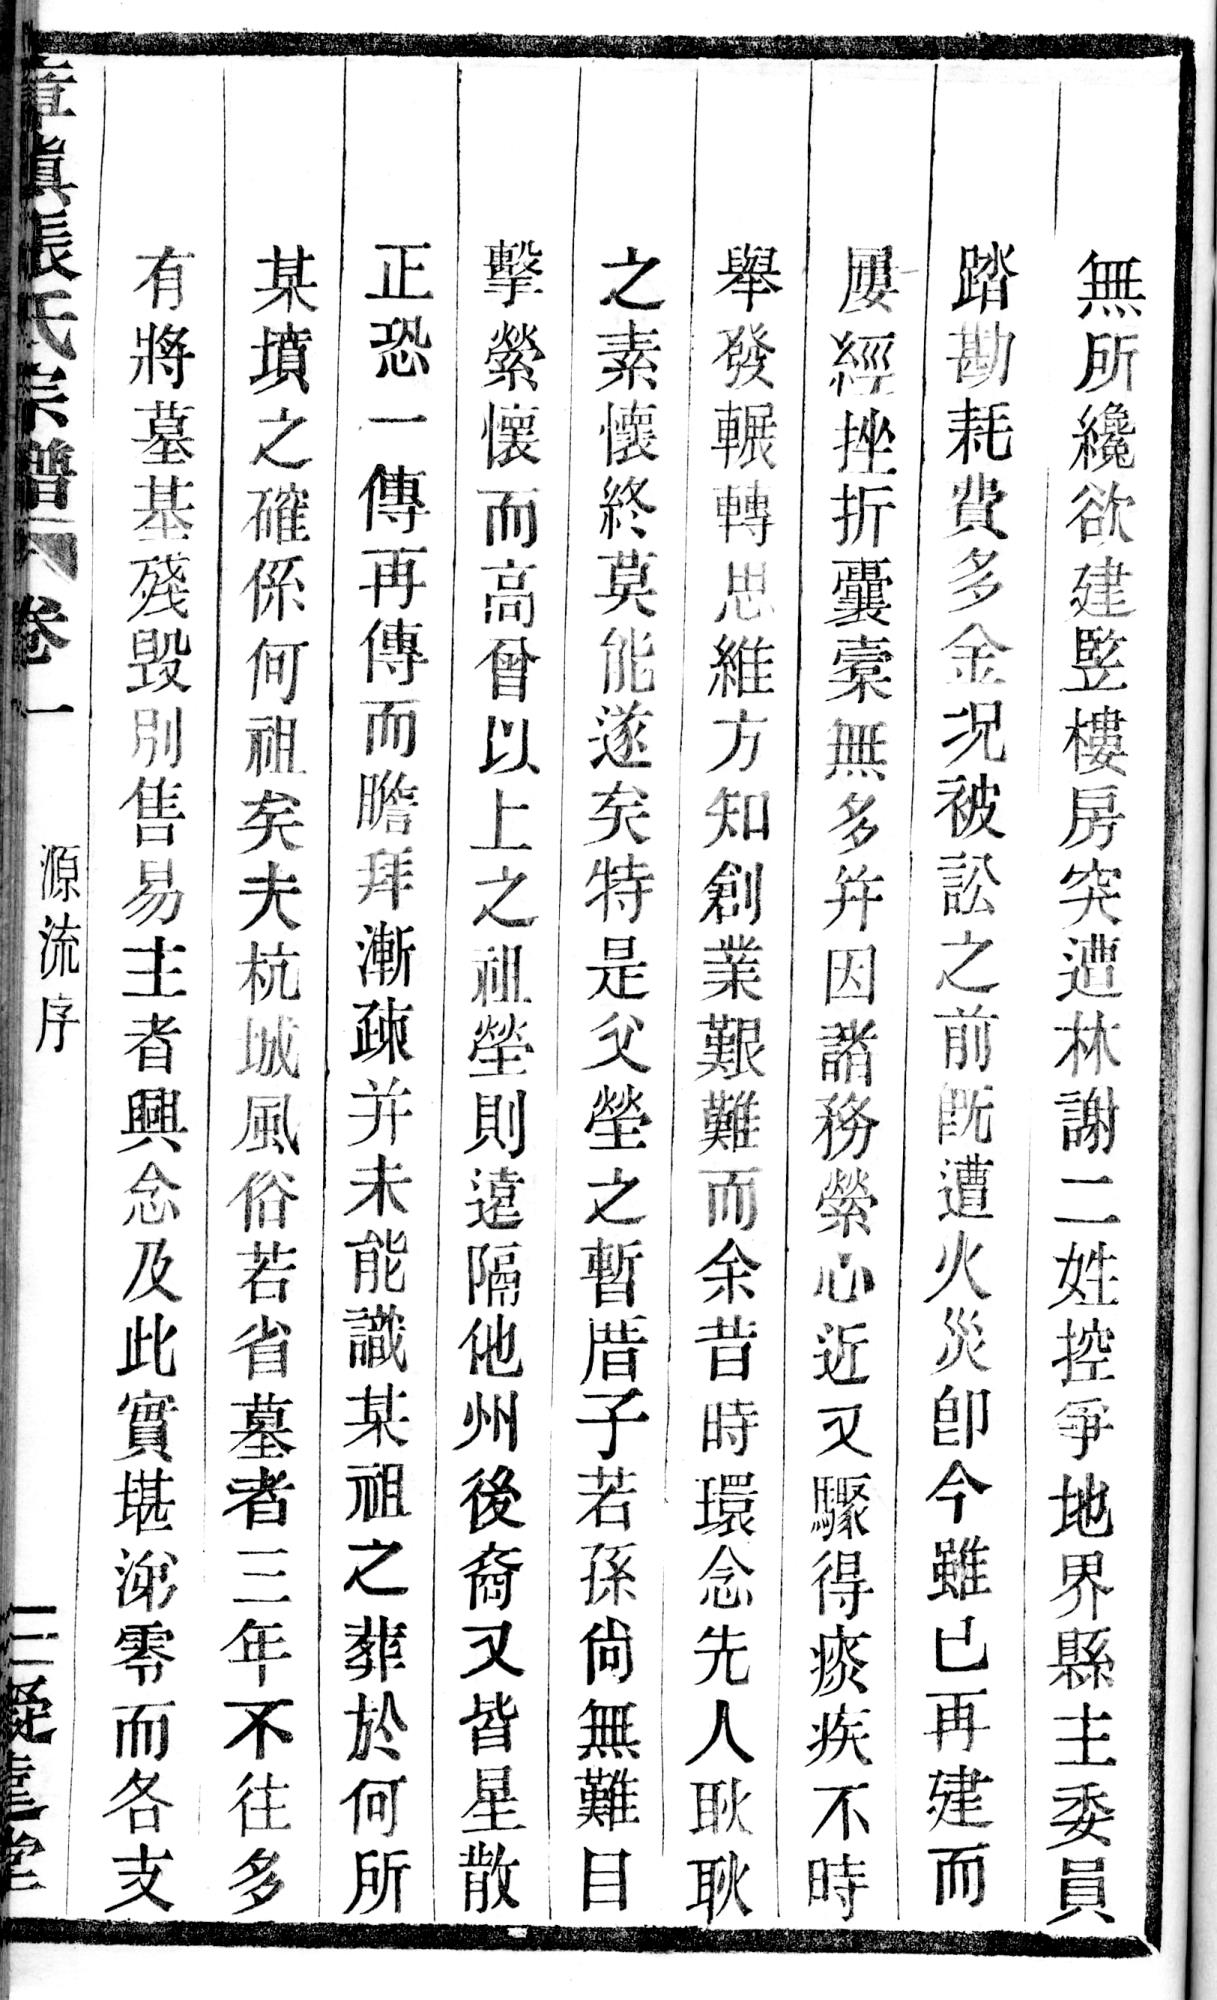 無所纔欲建竪樓房突遭林謝二姓控爭地界縣主委員
踏勘耗費多金况被訟之前既遭火災卽今雖已再建而
屢經挫折囊槖無多并因諸務縈心近又驟得痰疾不時
舉發輾轉思維方知創業艱難而余昔時環念先人耿耿
之素懷終莫能遂矣特是父塋之暫厝子若孫尙無難目
擊縈懷而高曾以上之祖塋則遠隔他州後裔又皆星散
正恐一傳再傳而瞻拜漸疎并未能識某祖之葬於何所
某墳之確係何祖矣夫杭城風俗若省墓者三年不往多
有將墓基殘毀別售易主者興念及此實堪涕零而各支
章鎮張氏宗譜 卷一 源流序 三 凝薰堂